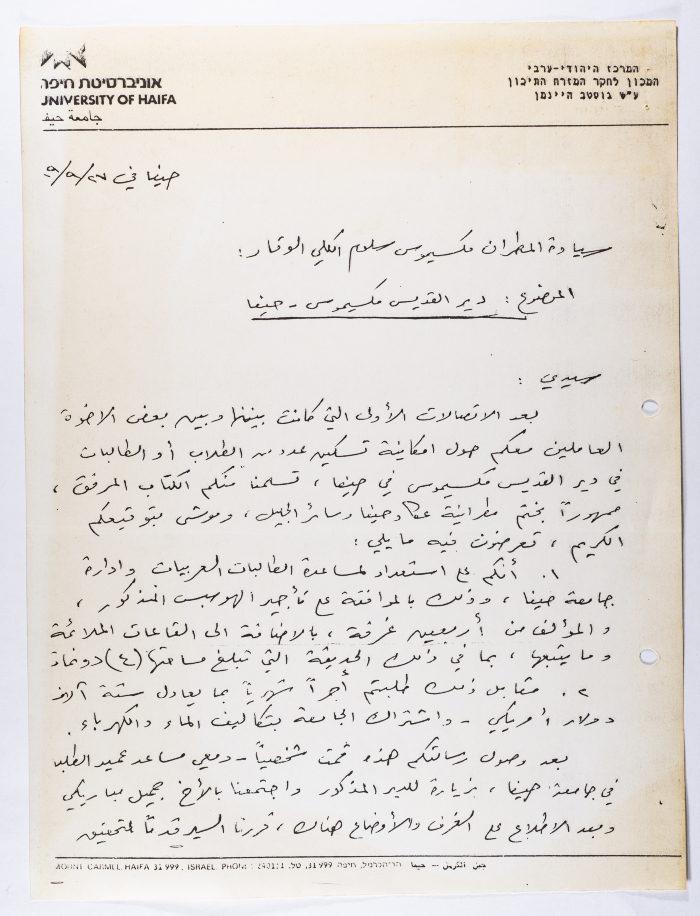 אוניברסיטת חיפה
UNIVERSITY OF HAIFA
جامعة حيفا
המרכז היהודי-ערבי
המכון לחקר המזרח התיכון
ע"ש גוסטב היינמן
حيفا في ٢٧/٩/
سيادة المطران مكسيموس سلوم الكلي الوقار :
الموضوع : دير القديس مكسيموس - حيفا
سيدي :
بعد الاتصالات الأولى التي كانت بيننا وبين بعض الاخوة
العاملين معكم حول امكانية تسكين عدد من الطلاب أو الطالبات
في دير القديس مكسيموس في حيفا ، تسلمنا منكم الكتاب المرفق ،
ممهوراً بختم مطرانية عكا وحيفا وسائر الجليل ، وموشى بتوقيعكم
الكريم ، تعرضون فيه ما يلي :
١. أنكم على استعداد لمساعدة الطالبات العربيات وادارة
جامعة حيفا ، وذلك بالموافقة على تأجير الهوسبس المذكور ،
والمؤلف من أربعين غرفة ، بالاضافة الى القاعات الملائمة
وما يتبعها ، بما في ذلك الحديقة التي تبلغ مساحتها (٤) دونمات
٢. مقابل ذلك طلبتم أجراً شهرياً بما يعادل ستة آلاف
دولار أمريكي - واشتراك الجامعة بتكاليف الماء والكهرباء .
بعد وصول رسالتكم هذه قمت شخصياً - ومعي مساعد عميد الطلبة
في جامعة حيفا ، بزيارة للدير المذكور واجتمعنا بالأخ جميل مباريكي
وبعد الاطلاع على الغرف والأوضاع هناك ، قررنا السير قدماً لتحقيق
MOUNT CARMEL, HAIFA 31 999, ISRAEL. PHONE: 240111 הר-הכרמל, חיפה 31 999, טל. جبل الكرمل - حيفا